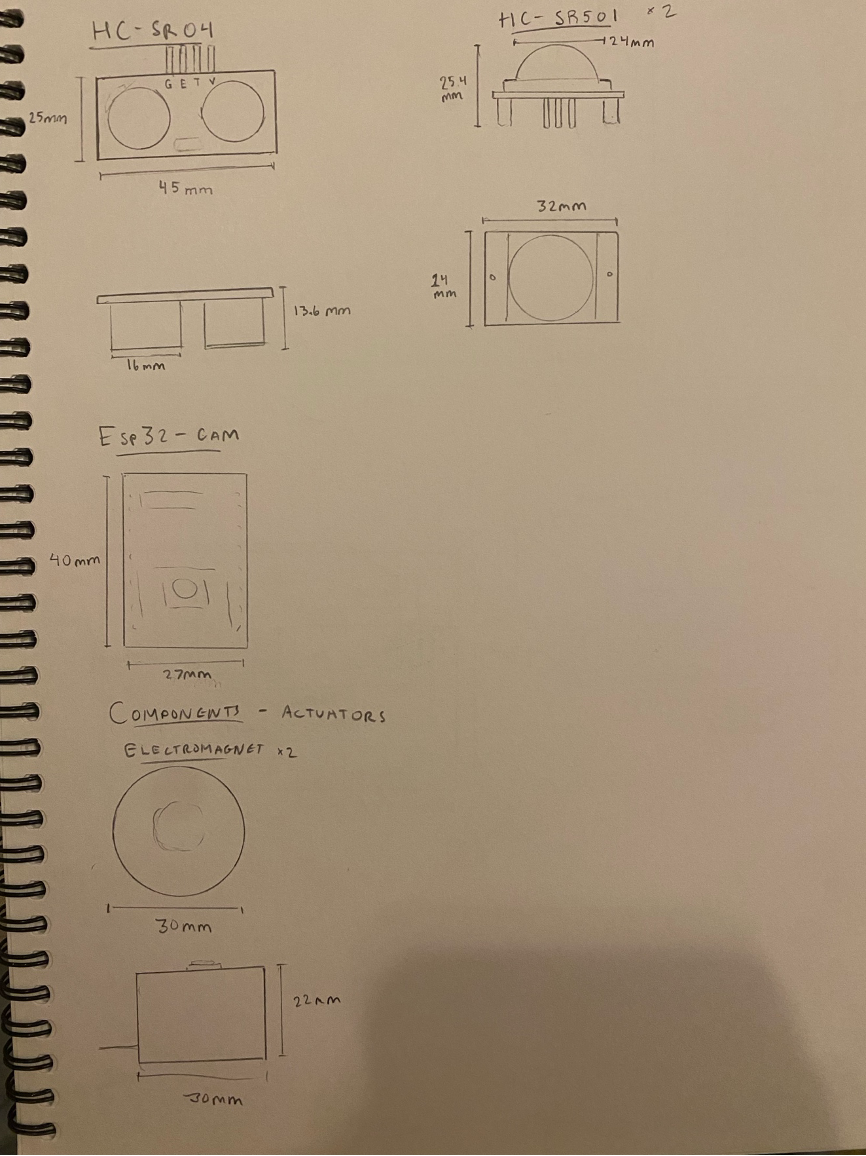 HC-SR04
G E T V
25mm
45mm
13.6 mm
16mm
HC-SR501 ×2
24mm
25.4
mm
32mm
24
mm
Esp32-CAM
40mm
27mm
COMPONENTS - ACTUATORS
ELECTROMAGNET ×2
30mm
22mm
30mm